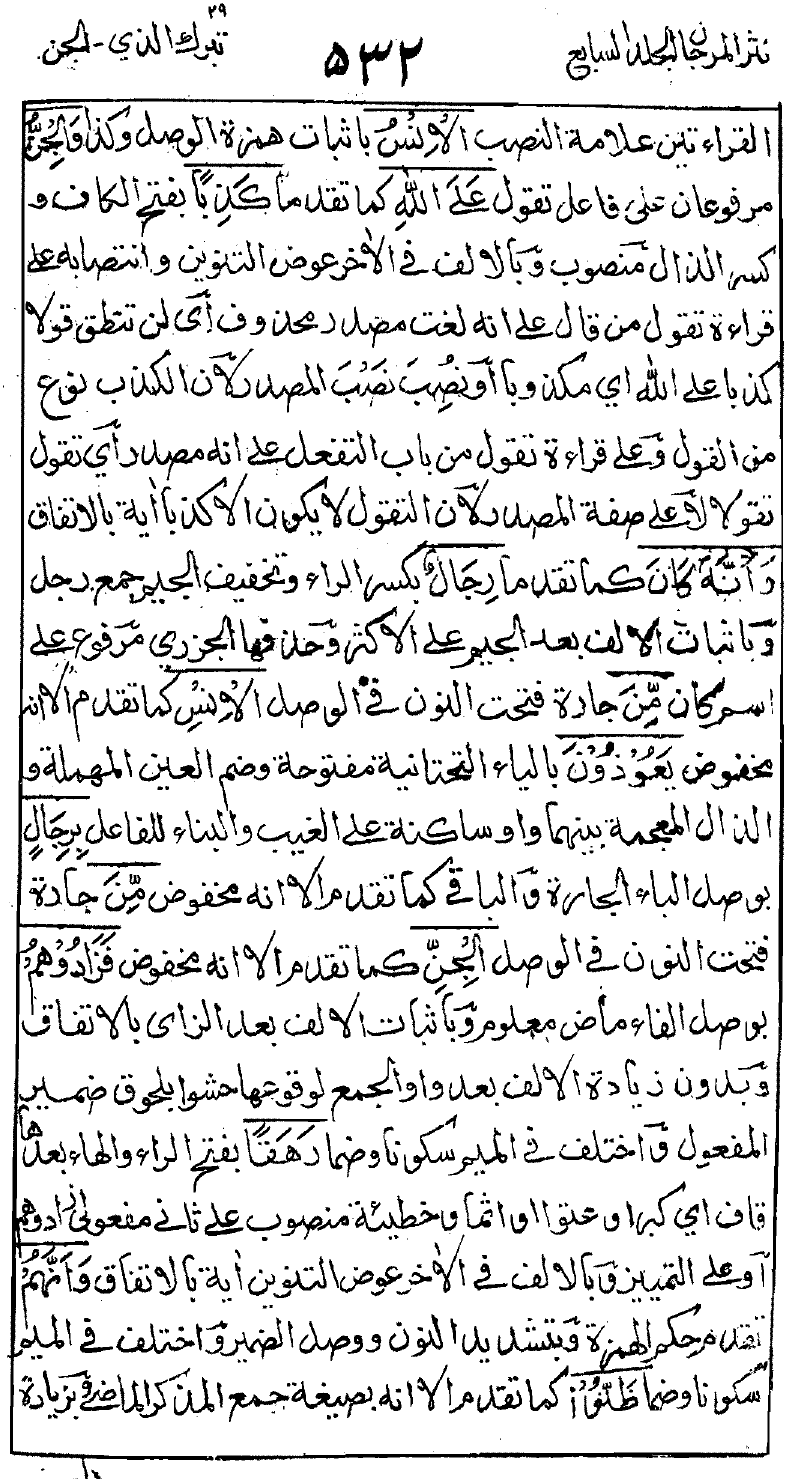 نثر المرجان المجلد السابع
۵۳۲
تبرك الذي ۲۹ - الجن
القراءتين علامة النصب الْاِنْسُ باثبات همزة الوصل وكذا وَالْجِنُّ
مرفوعان على فاعل تقول عَلَى اللّٰهِ كما تقدم ما كَذِبًا بفتح الكاف و
كسر الذال منصوب وبالالف في الاٰخر عوض التنوين وانتصابه على
قراءة تقول من قال على انه نعت مصدر محذوف أي لن تنطق قولا
كذبا على الله اي مكذوبا أو نُصِبَ نَصْبَ المصدر لأن الكذب نوع
من القول وعلى قراءة تقول من باب التفعل على انه مصدر أي تقول
تقولا لا على صفة المصدر لأن التقول لا يكون الا كذبا اٰية بالاتفاق
وَاَنَّهٗ كَانَ كما تقدم ما رِجَالٌ بكسر الراء وتخفيف الجيم جمع رجل
وباثبات الالف بعد الجيم على الاكثر وحذفها الجزري مرفوع على
اسم كان مِّنَ جادة فتحت النون في الوصل الْاِنْسِ كما تقدم الا انه
مخفوض يَعُوْذُوْنَ بالياء التحتانية مفتوحة وضم العين المهملة و
الذال المعجمة بينهما واو ساكنة على الغيب والبناء للفاعل بِرِجَالٍ
بوصل الباء الجارة والباقي كما تقدم الا انه مخفوض مِّنَ جادة
فتحت النون في الوصل الْجِنِّ كما تقدم الا انه مخفوض فَزَادُوْهُمْ
بوصل الفاء ماض معلوم وباثبات الالف بعد الزاى بالاتفاق
وبدون زيادة الالف بعد واو الجمع لوقوعها حشوا بلحوق ضمير
المفعول واختلف في الميم سكونا وضما رَهَقًا بفتح الراء والهاء بعدها
قاف اي كبرا وعتوا او اثما وخطيئة منصوب على ثاني مفعولى زادوهم
أو على التمييز وبالالف في الاٰخر عوض التنوين اٰية بالاتفاق وَاَنَّهُمْ
تقدم حكم الهمزة وبتشديد النون ووصل الضمير واختلف في الميم
سكونا وضما ظَنُّوْا كما تقدم الا انه بصيغة جمع المذكر الماضي وبزيادة